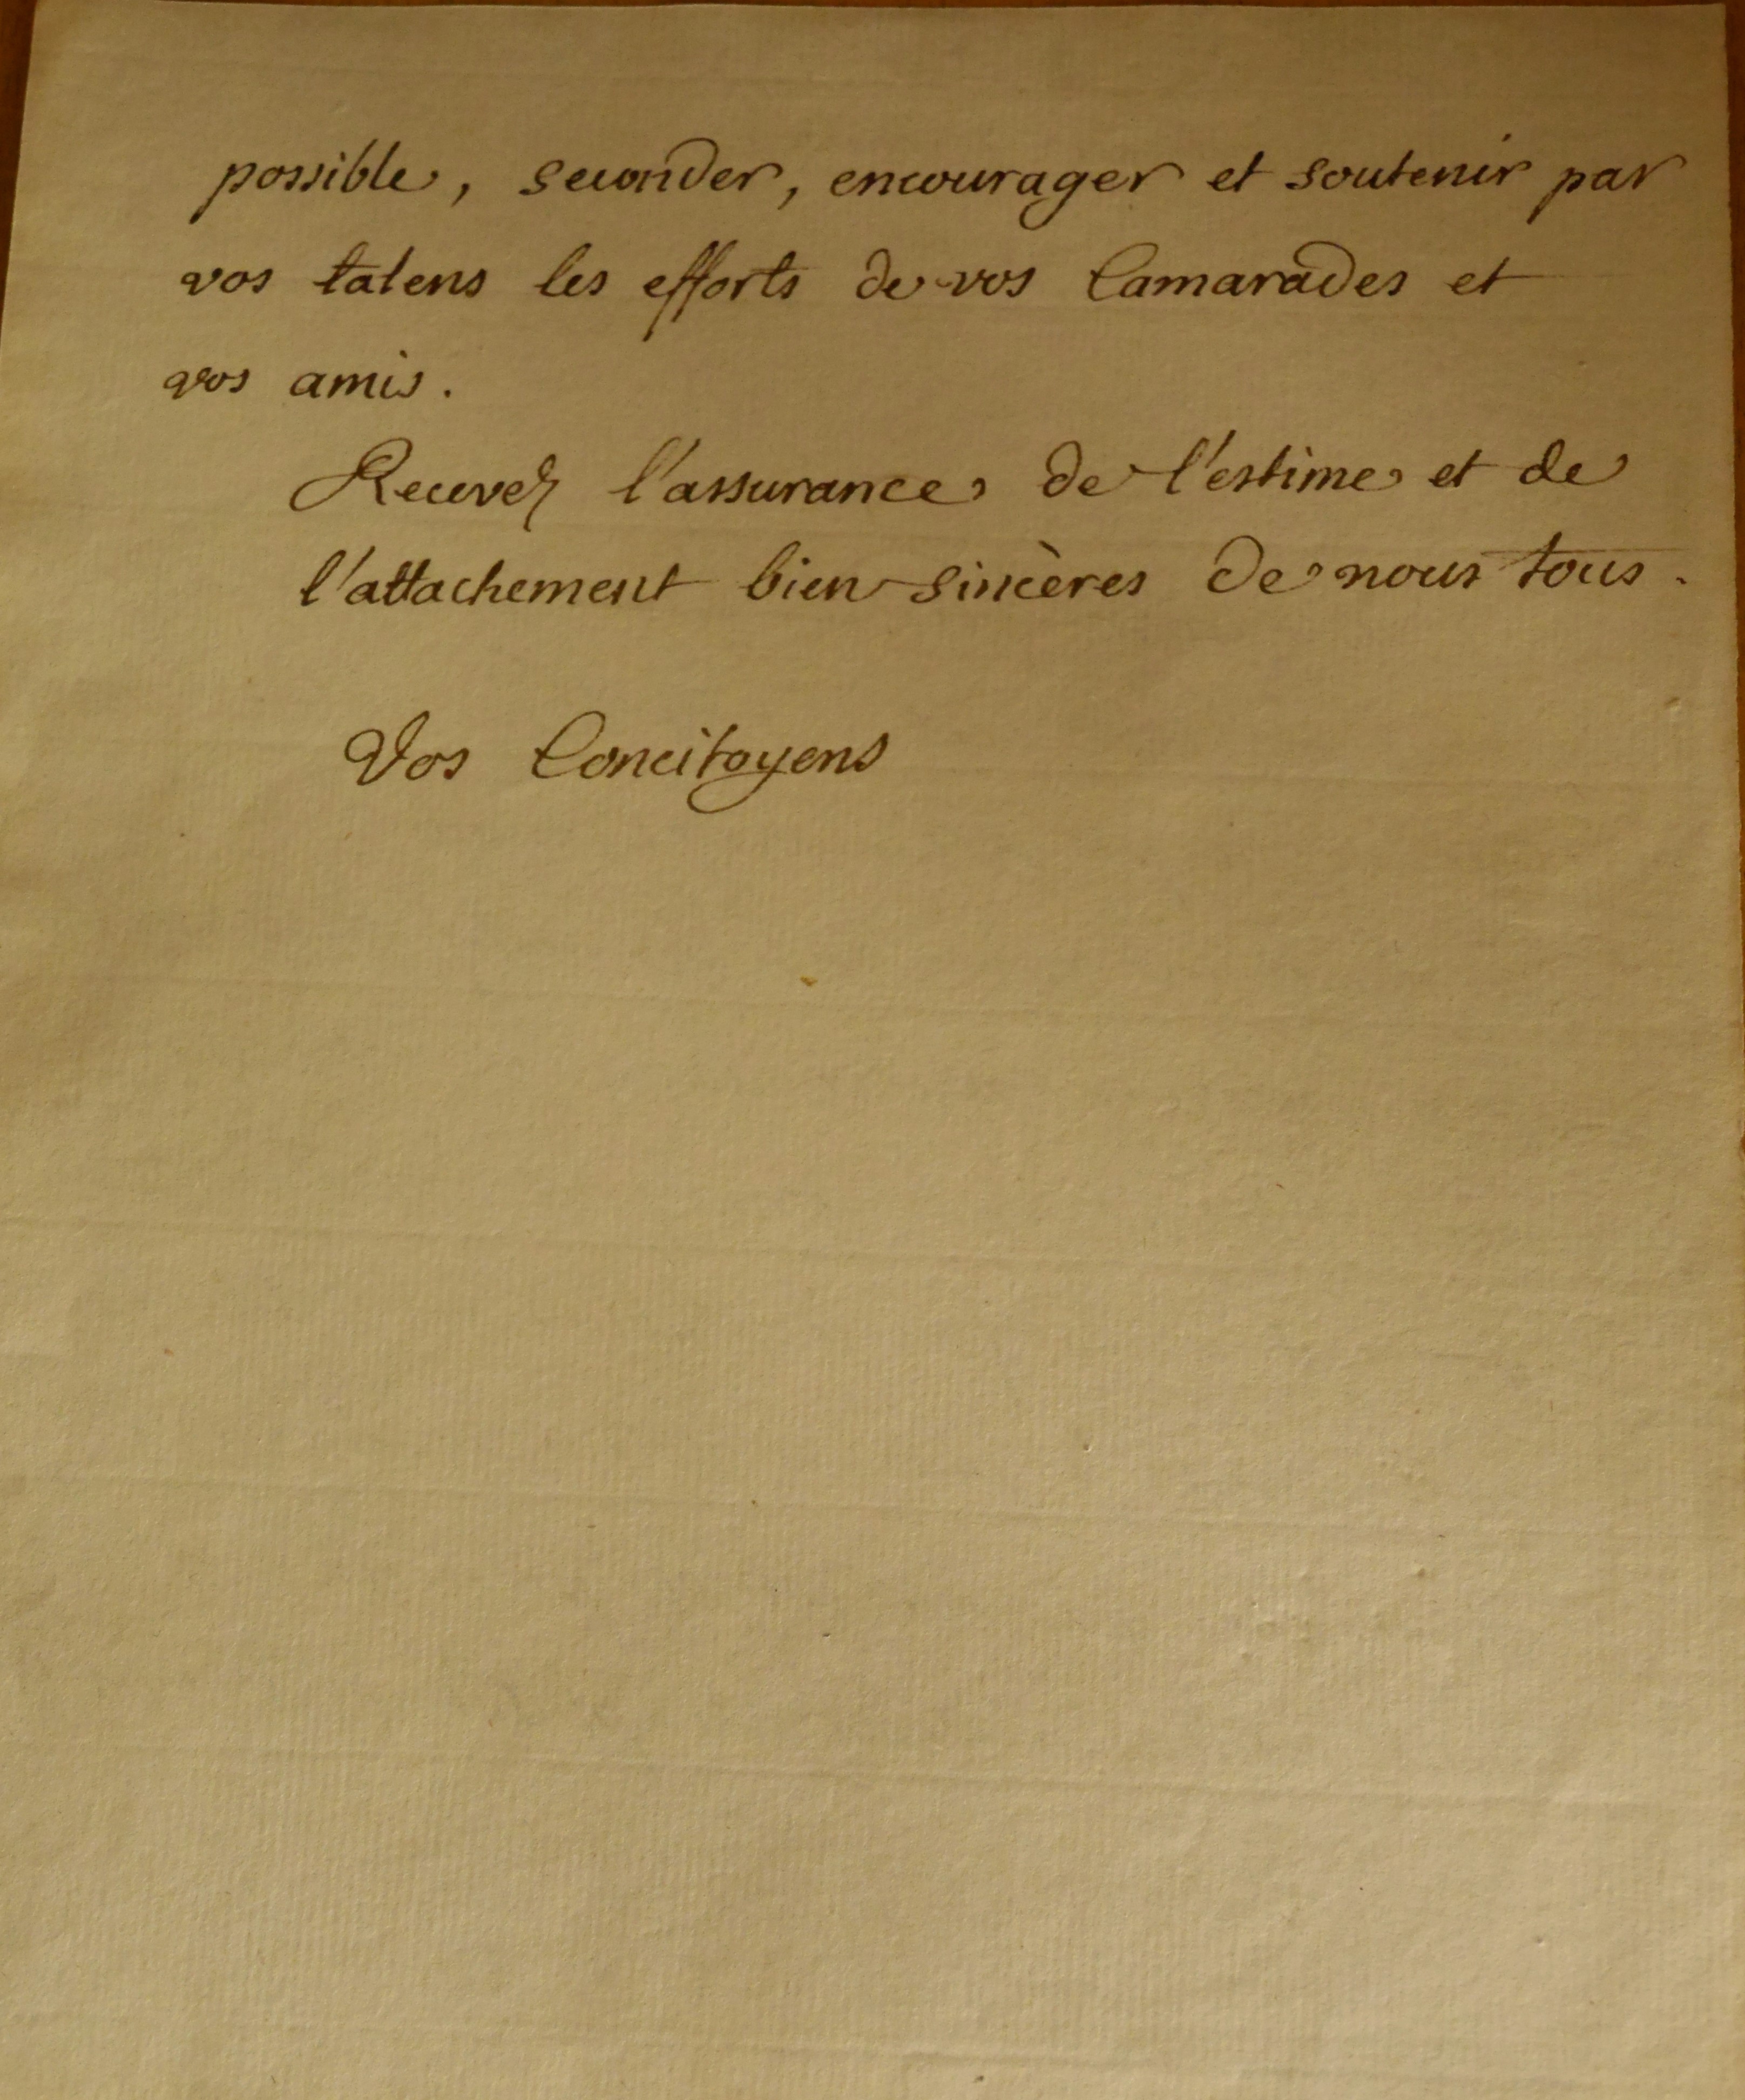 possible, seconder, encourager et soutenir par
vos talens les efforts de vos Camarades et
vos amis.
Recevez l'assurance de l'estime et de
l'attachement bien sincères de nous tous.
Vos Concitoyens